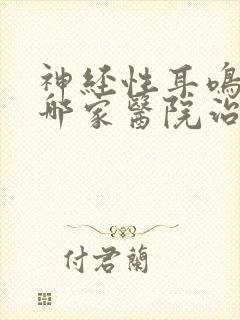 神经性耳鳴
哪家醫院治
付君蘭